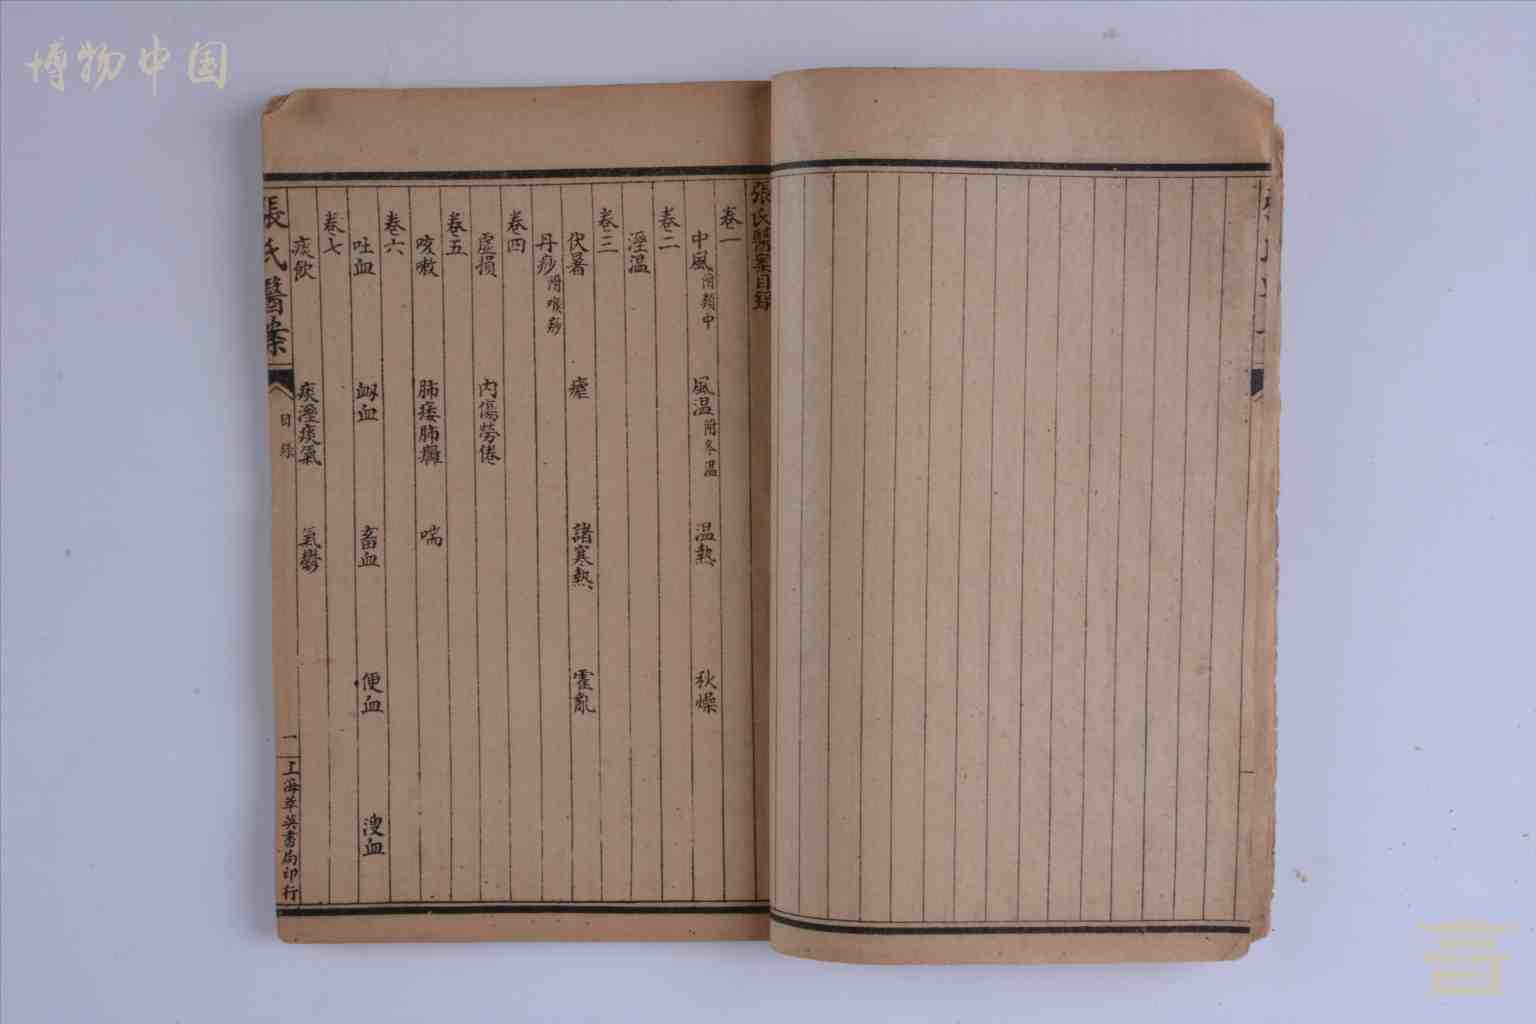 博物中国
張氏醫案目錄
卷一
中風附類中 風温附冬温 温熱 秋燥
卷二
溼温
卷三
伏暑 瘧 諸寒熱 霍亂
丹痧附喉痧
卷四
虛損 內傷勞倦
卷五
咳嗽 肺痿肺癰 喘
卷六
吐血 衂血 畜血 便血 溲血
卷七
痰飲 痰溼痰氣 氣鬱
張氏醫案 目錄 一 上海萃英書局印行